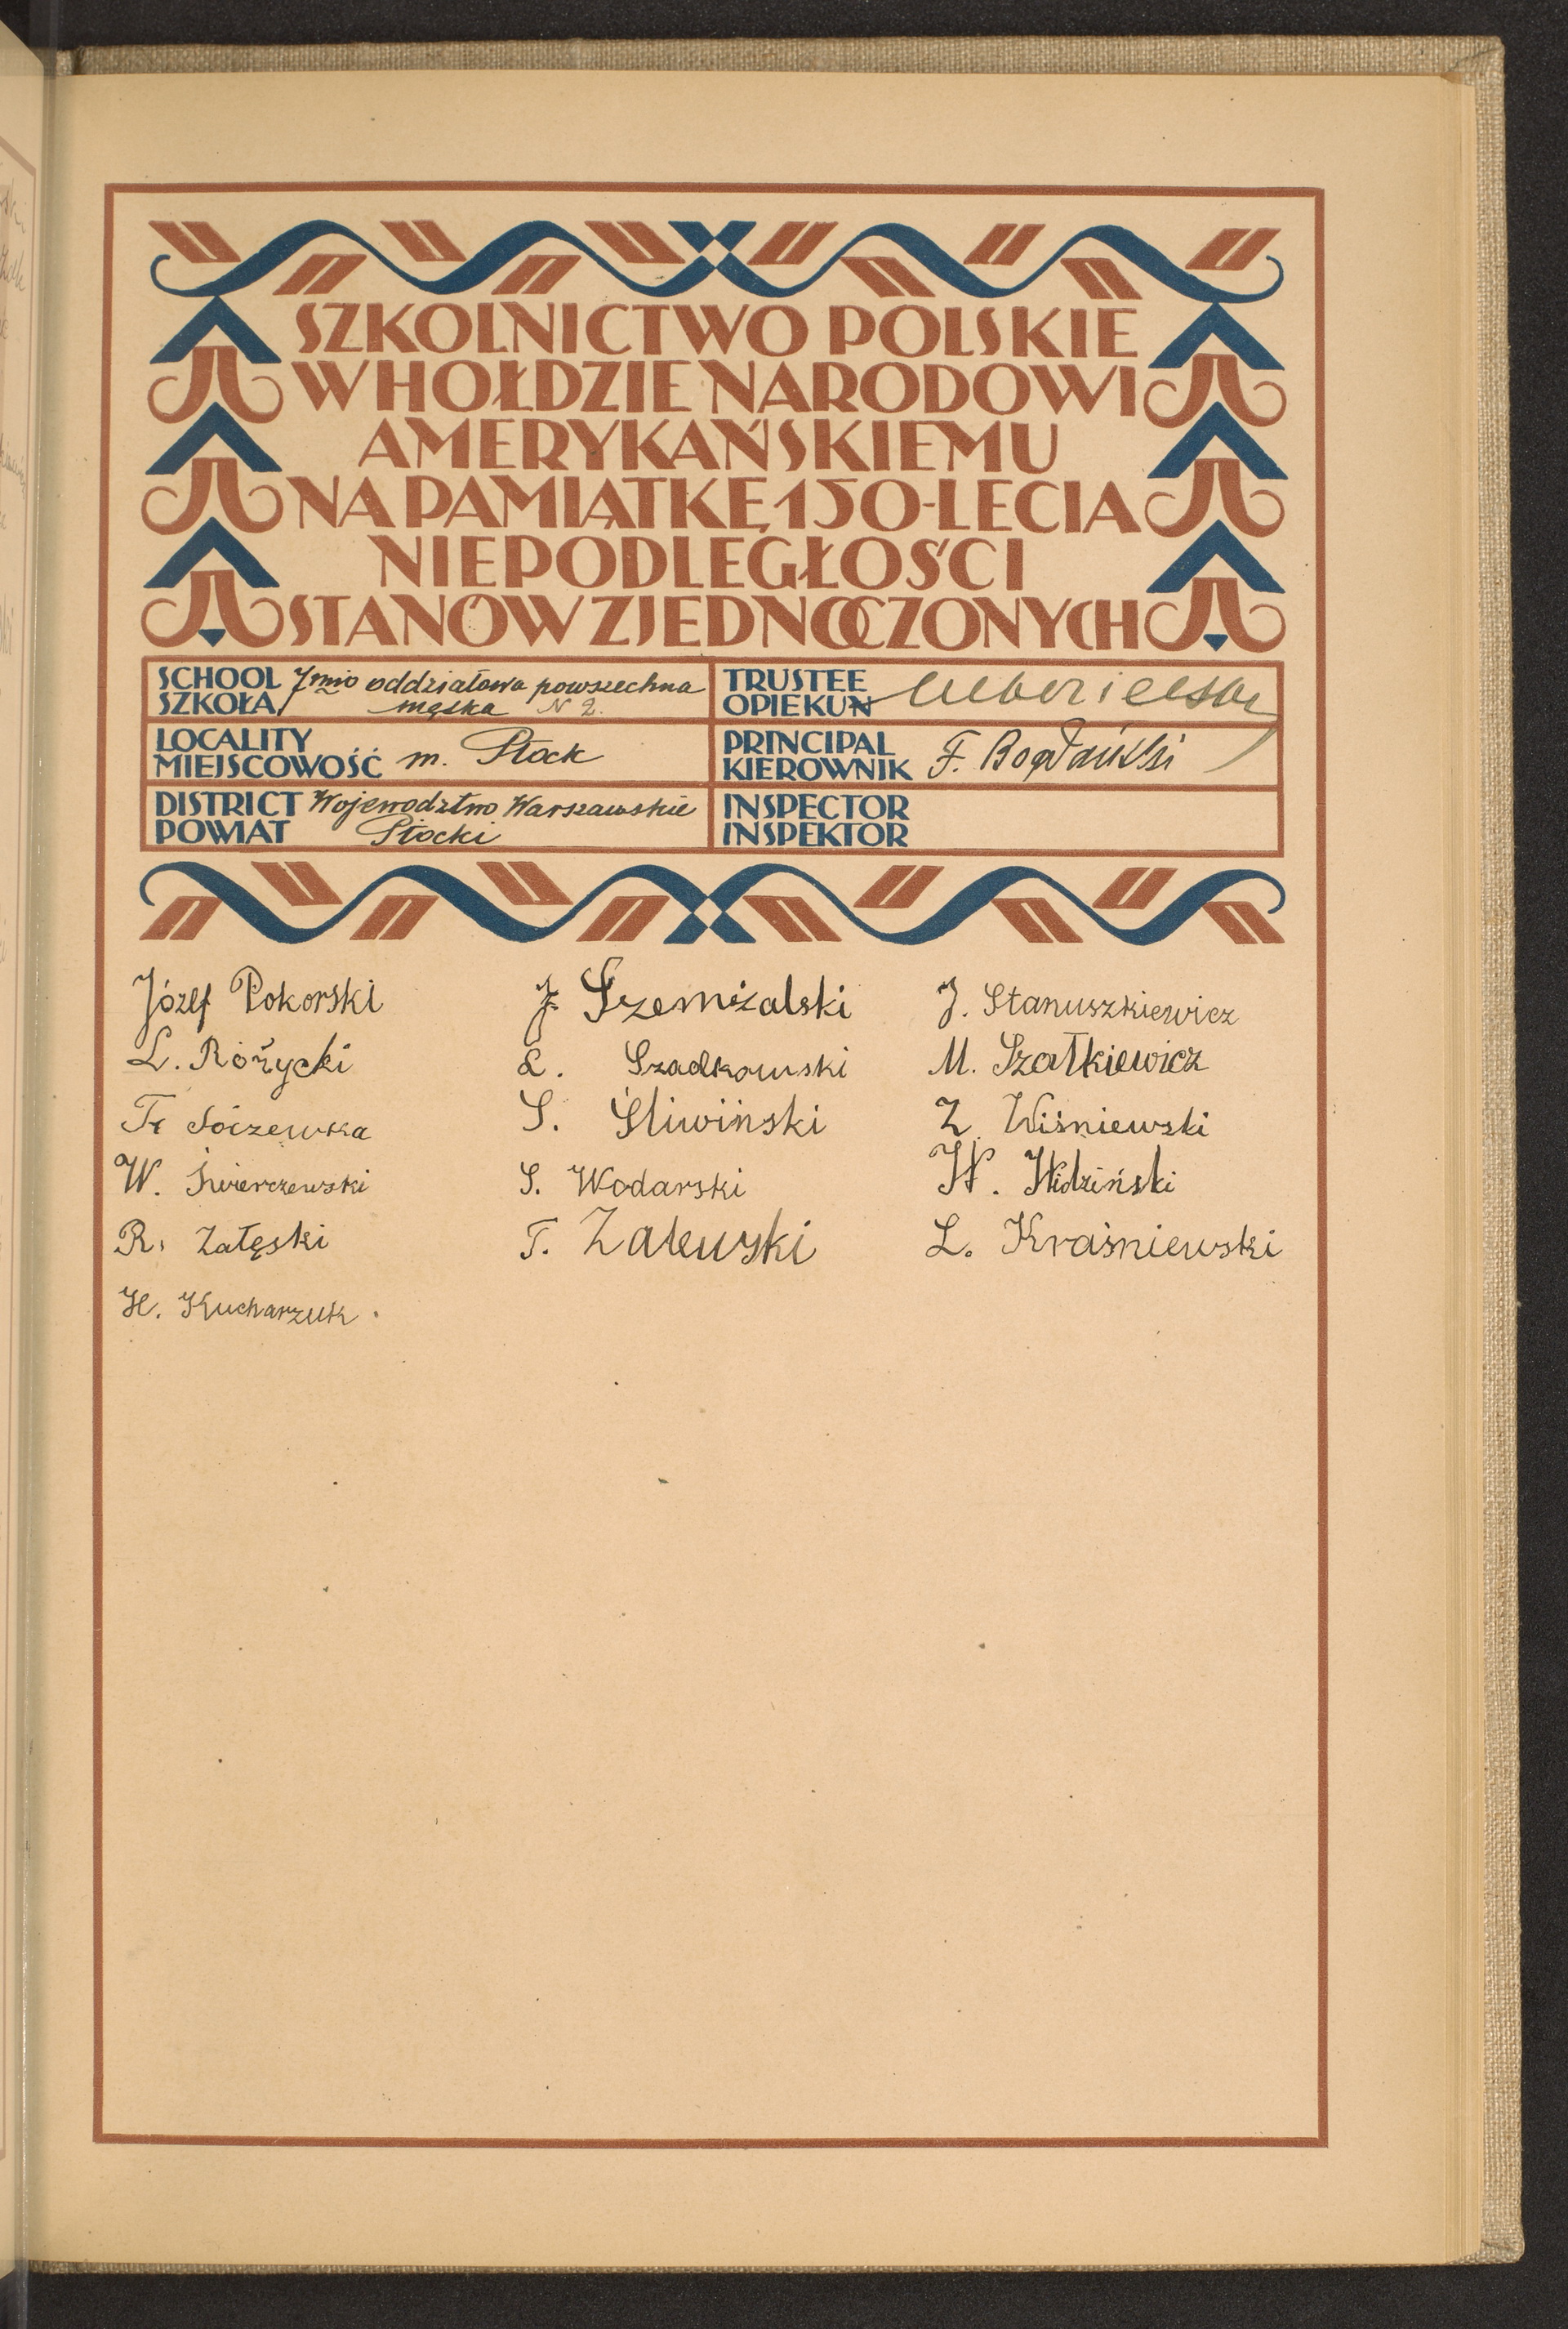 SZKOLNICTWO POLSKIE
W HOŁDZIE NARODOWI
AMERYKAŃSKIEMU
NA PAMIĄTKĘ 150-LECIA
NIEPODLEGŁOŚCI
STANÓW ZJEDNOCZONYCH
SCHOOL
SZKOŁA
7mio oddziałowa powszechna
męska N 2.
TRUSTEE
OPIEKUN
LOCALITY
MIEJSCOWOŚĆ
m. Płock
PRINCIPAL
KIEROWNIK
F. Bogdański
DISTRICT
POWIAT
Województwo Warszawskie
Płocki
INSPECTOR
INSPEKTOR
Józef Pokorski
L. Różycki
W. Świerczewski
R. Załęski
H. Kucharzuk.
J. Szemiżalski
L. Szadkowski
S. Śliwiński
S. Wodarski
T. Zalewski
J. Stanuszkiewicz
M. Szatkiewicz
Z Wiśniewski
W. Widziński
L. Kraśniewski